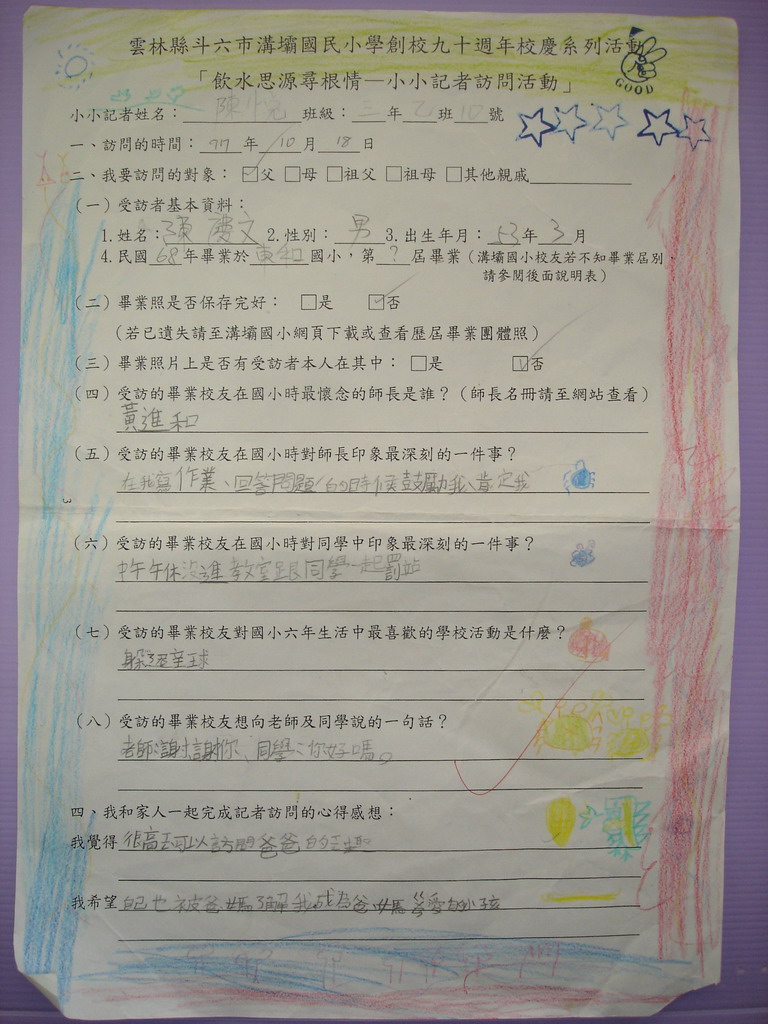 雲林縣斗六市溝壩國民小學創校九十週年校慶系列活動
「飲水思源尋根情—小小記者訪問活動」
GOOD
小小記者姓名：陳 班級：二年乙班10號
一、訪問的時間：97年10月18日
二、我要訪問的對象：☑父 □母 □祖父 □祖母 □其他親戚
（一）受訪者基本資料：
1.姓名：陳慶文 2.性別：男 3.出生年月：53年3月
4.民國68年畢業於東和國小，第?屆畢業（溝壩國小校友若不知畢業屆別，
請參閱後面說明表）
（二）畢業照是否保存完好： □是 ☑否
（若已遺失請至溝壩國小網頁下載或查看歷屆畢業團體照）
（三）畢業照片上是否有受訪者本人在其中：□是 ☑否
（四）受訪的畢業校友在國小時最懷念的師長是誰？（師長名冊請至網站查看）
黃進和
（五）受訪的畢業校友在國小時對師長印象最深刻的一件事？
在我寫作業、回答問題的時候鼓勵我、肯定我
（六）受訪的畢業校友在國小時對同學中印象最深刻的一件事？
中午午休沒進教室跟同學一起罰站
（七）受訪的畢業校友對國小六年生活中最喜歡的學校活動是什麼？
躲避球
（八）受訪的畢業校友想向老師及同學說的一句話？
老師謝謝你、同學你好嗎。
四、我和家人一起完成記者訪問的心得感想：
我覺得很高興可以訪問爸爸的
我希望自己也被爸媽了解我成為爸媽 愛的小孩